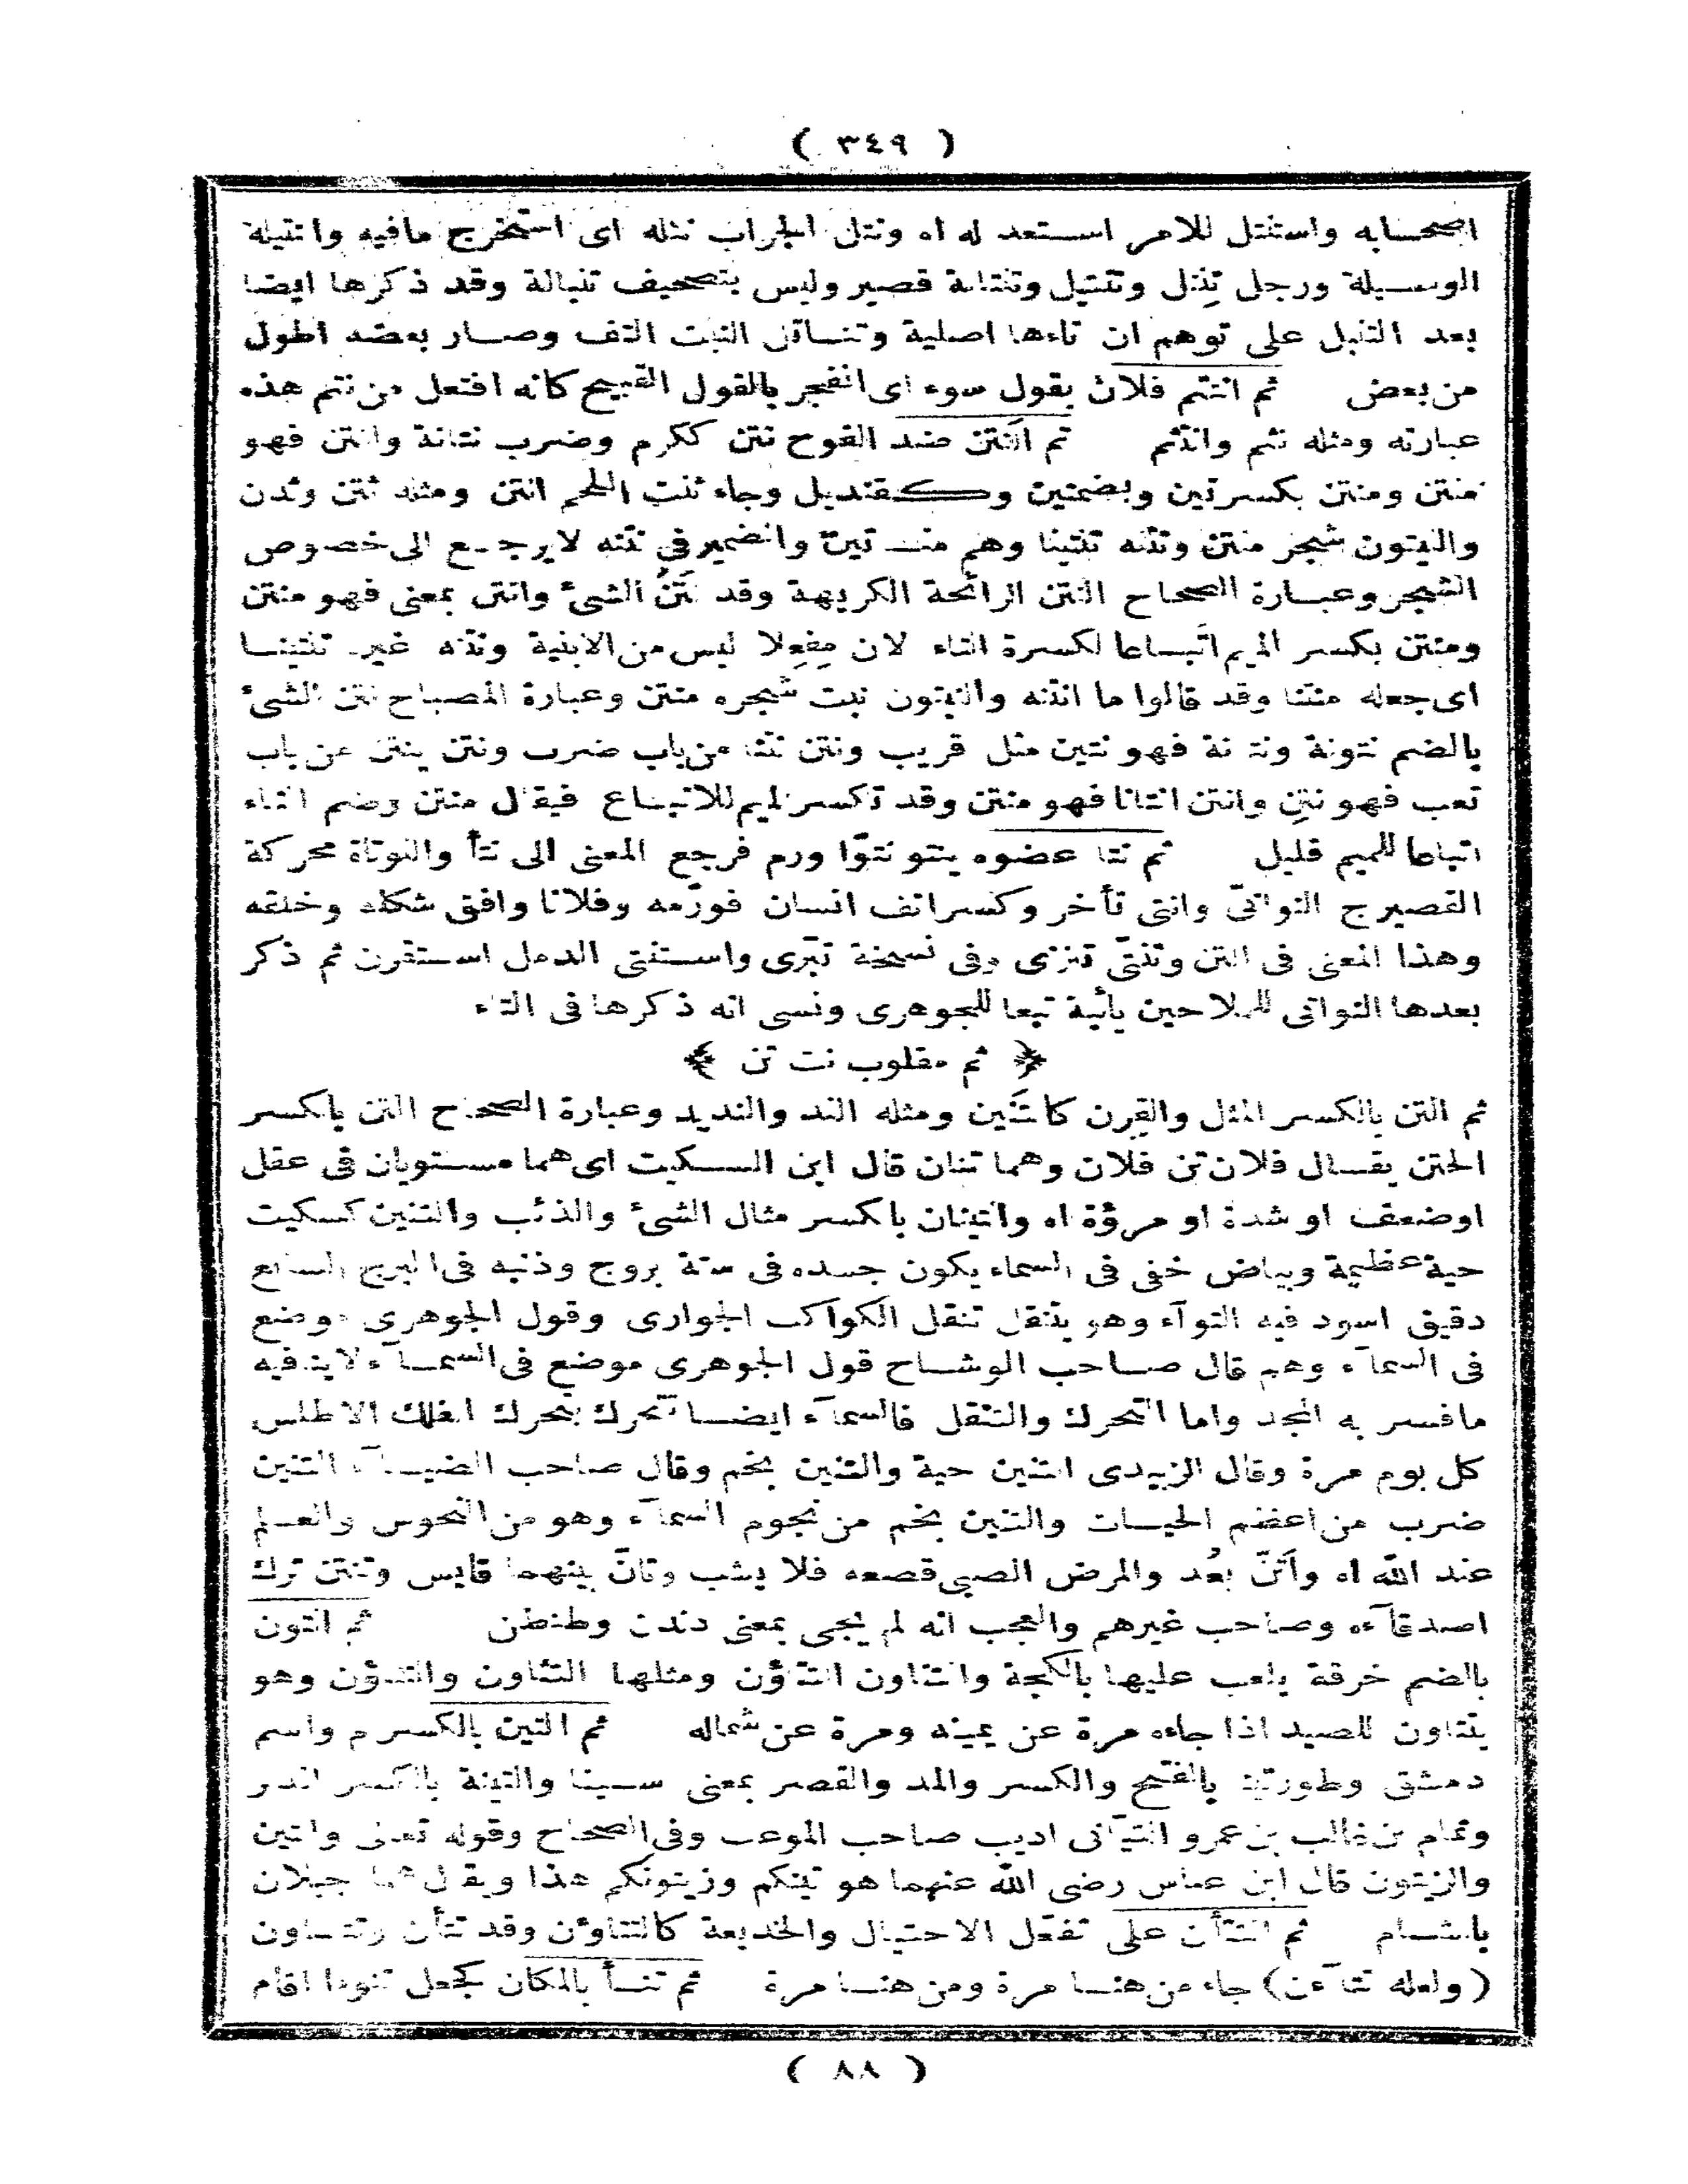 ( ٣٤٩ )
اصحابه واستنتل للامر استعد له اه ونتل الجراب نثله اى استخرج مافيه والنتيلة
الوسيلة ورجل تِنْتل وتنتيل وتنتالة قصير وليس بتصحيف تنبالة وقد ذكرها ايضا
بعد التنبل على توهم ان تاءها اصلية وتناتل النبت التف وصار بعضه اطول
من بعض ثم انتتم فلان بقول سوء اى انفجر بالقول القبيح كانه افتعل من نتم هذه
عبارته ومثله نثم وانتثم ثم النَتن ضد الفوح نتن ككرم وضرب نتانة وانتن فهو
منتن ومنتن بكسرتين وبضمتين وكقنديل وجاء ثنت اللحم انتن ومثله ثتن وثدن
والنيتون شجر منتن ونتنه تنتينا وهم مناتين والضمير فى نتنه لا يرجع الى خصوص
الشجر وعبارة الصحاح النتن الرائحة الكريهة وقد نَتنُ الشئ وانتن بمعنى فهو منتن
ومنتن بكسر الميم اتباعا لكسرة التاء لان مِفعِلا ليس من الابنية ونتنه غيره تنتينا
اى جعله منتنا وقد قالوا ما انتنه والنيتون نبت شجره منتن وعبارة المصباح نتن الشئ
بالضم نتونة ونتانة فهو نتين مثل قريب ونتن نتنا من باب ضرب ونتن ينتن من باب
تعب فهو نتِن وانتن انتانا فهو منتن وقد تكسر الميم للاتباع فيقال منتن وضم التاء
اتباعا للميم قليل ثم نتا عضوه ينتو نتوّا ورم فرجع المعنى الى نتأ والنوتاة محركة
القصير ج النواتىّ وانتى تأخر وكسر انف انسان فورّمه وفلانا وافق شكله وخلقه
وهذا المعنى فى التن وتنتّى تنزى وفى نسخة تبرّى واستنتى الدمل استقرن ثم ذكر
بعدها النواتى للملاحين يائية تبعا للجوهرى ونسى انه ذكرها فى التاء
﴿ ثم مقلوب نت تن ﴾
ثم التن بالكسر المثل والقرن كالتَنين ومثله الند والنديد وعبارة الصحاح التن بالكسر
الحتن يقال فلان تن فلان وهما تنان قال ابن السكيت اى هما مستويان فى عقل
او ضعف او شدة او مروّة اه والتينان بالكسر مثال الشئ والذئب والتنين كسكيت
حية عظيمة وبياض خفى فى السماء يكون جسده فى ستة بروج وذنبه فى البرج السابع
دقيق اسود فيه التوآء وهو يتنقل تنقل الكواكب الجوارى وقول الجوهرى موضع
فى السمآء وهم قال صاحب الوشاح قول الجوهرى موضع فى السمآء لا ينافيه
ما فسر به المجد واما التحرك والتنقل فالسمآء ايضا تتحرك بتحرك الفلك الاطلس
كل يوم مرة وقال الزبيدى التنين حية والتنين نجم وقال صاحب الضيآء التنين
ضرب من اعظم الحيات والتنين نجم من نجوم السمآء وهو من النحوس والعلم
عند الله اه وأتنّ بعُد والمرض الصبى قصعه فلا يشب وتانّ بينهما قايس وتنتن ترك
اصدقآءه وصاحب غيرهم والعجب انه لم يجى بمعنى دندن وطنطن ثم التون
بالضم خرقة يلعب عليها بالكجة والتتاون التتاؤن ومثلها التثاون والتدؤن وهو
يتتاون للصيد اذا جاءه مرة عن يمينه ومرة عن شماله ثم التين بالكسر م واسم
دمشق وطورتينا بالفتح والكسر والمد والقصر بمعنى سينا والتينة بالكسر الدبر
وتمام بن غالب بن عمرو التيّانى اديب صاحب الموعب وفى الصحاح وقوله تعالى والتين
والزيتون قال ابن عباس رضى الله عنهما هو تينكم وزيتونكم هذا ويقال هما جبلان
بالشام ثم التتأن على تفعّل الاحتيال والخديعة كالتتاؤن وقد تتأن وتتاون
(ولعله تتاءن) جاء من هنا مرة ومن هنا مرة ثم تنأ بالمكان كجعل تنوءا اقام
( ٨٨ )